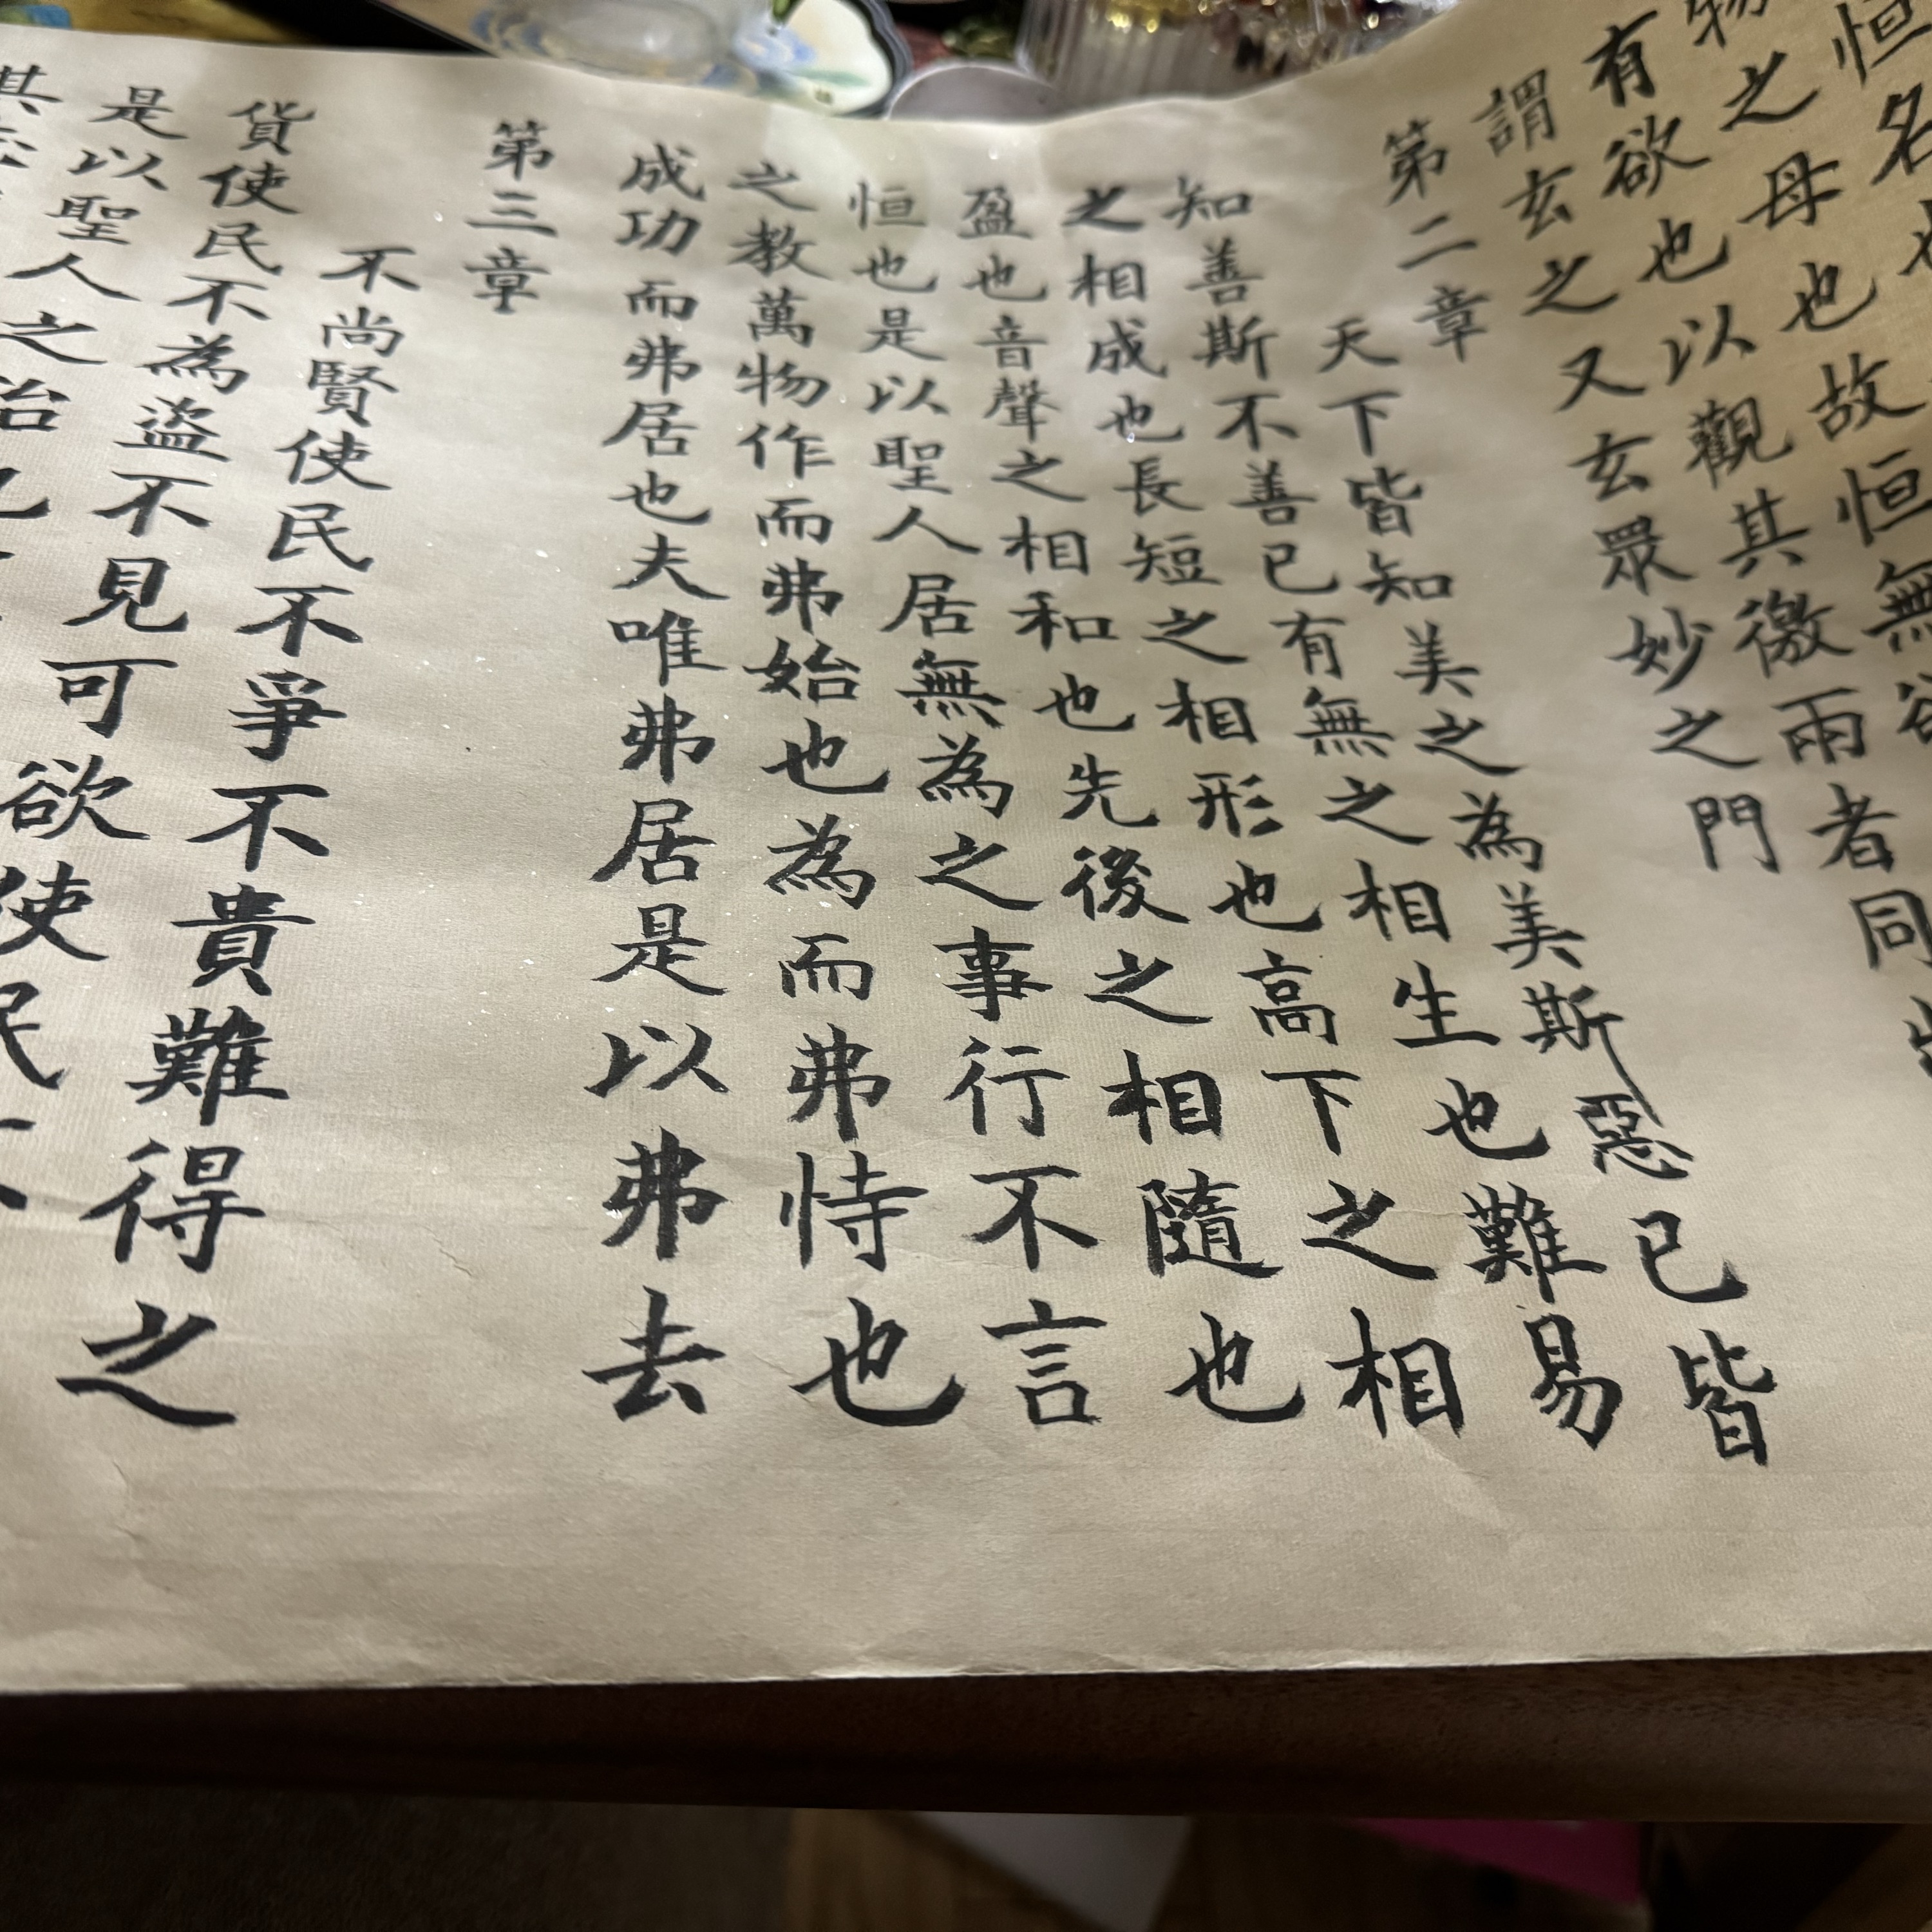 恒名
物之母也故恒無欲
有欲也以觀其徼兩者同出
謂玄之又玄眾妙之門
第二章
天下皆知美之為美斯惡已皆
知善斯不善已有無之相生也難易
之相成也長短之相形也高下之相
盈也音聲之相和也先後之相隨也
恒也是以聖人居無為之事行不言
之教萬物作而弗始也為而弗恃也
成功而弗居也夫唯弗居是以弗去
第三章
不尚賢使民不爭不貴難得之
貨使民不為盜不見可欲使民不
是以聖人之治也
其